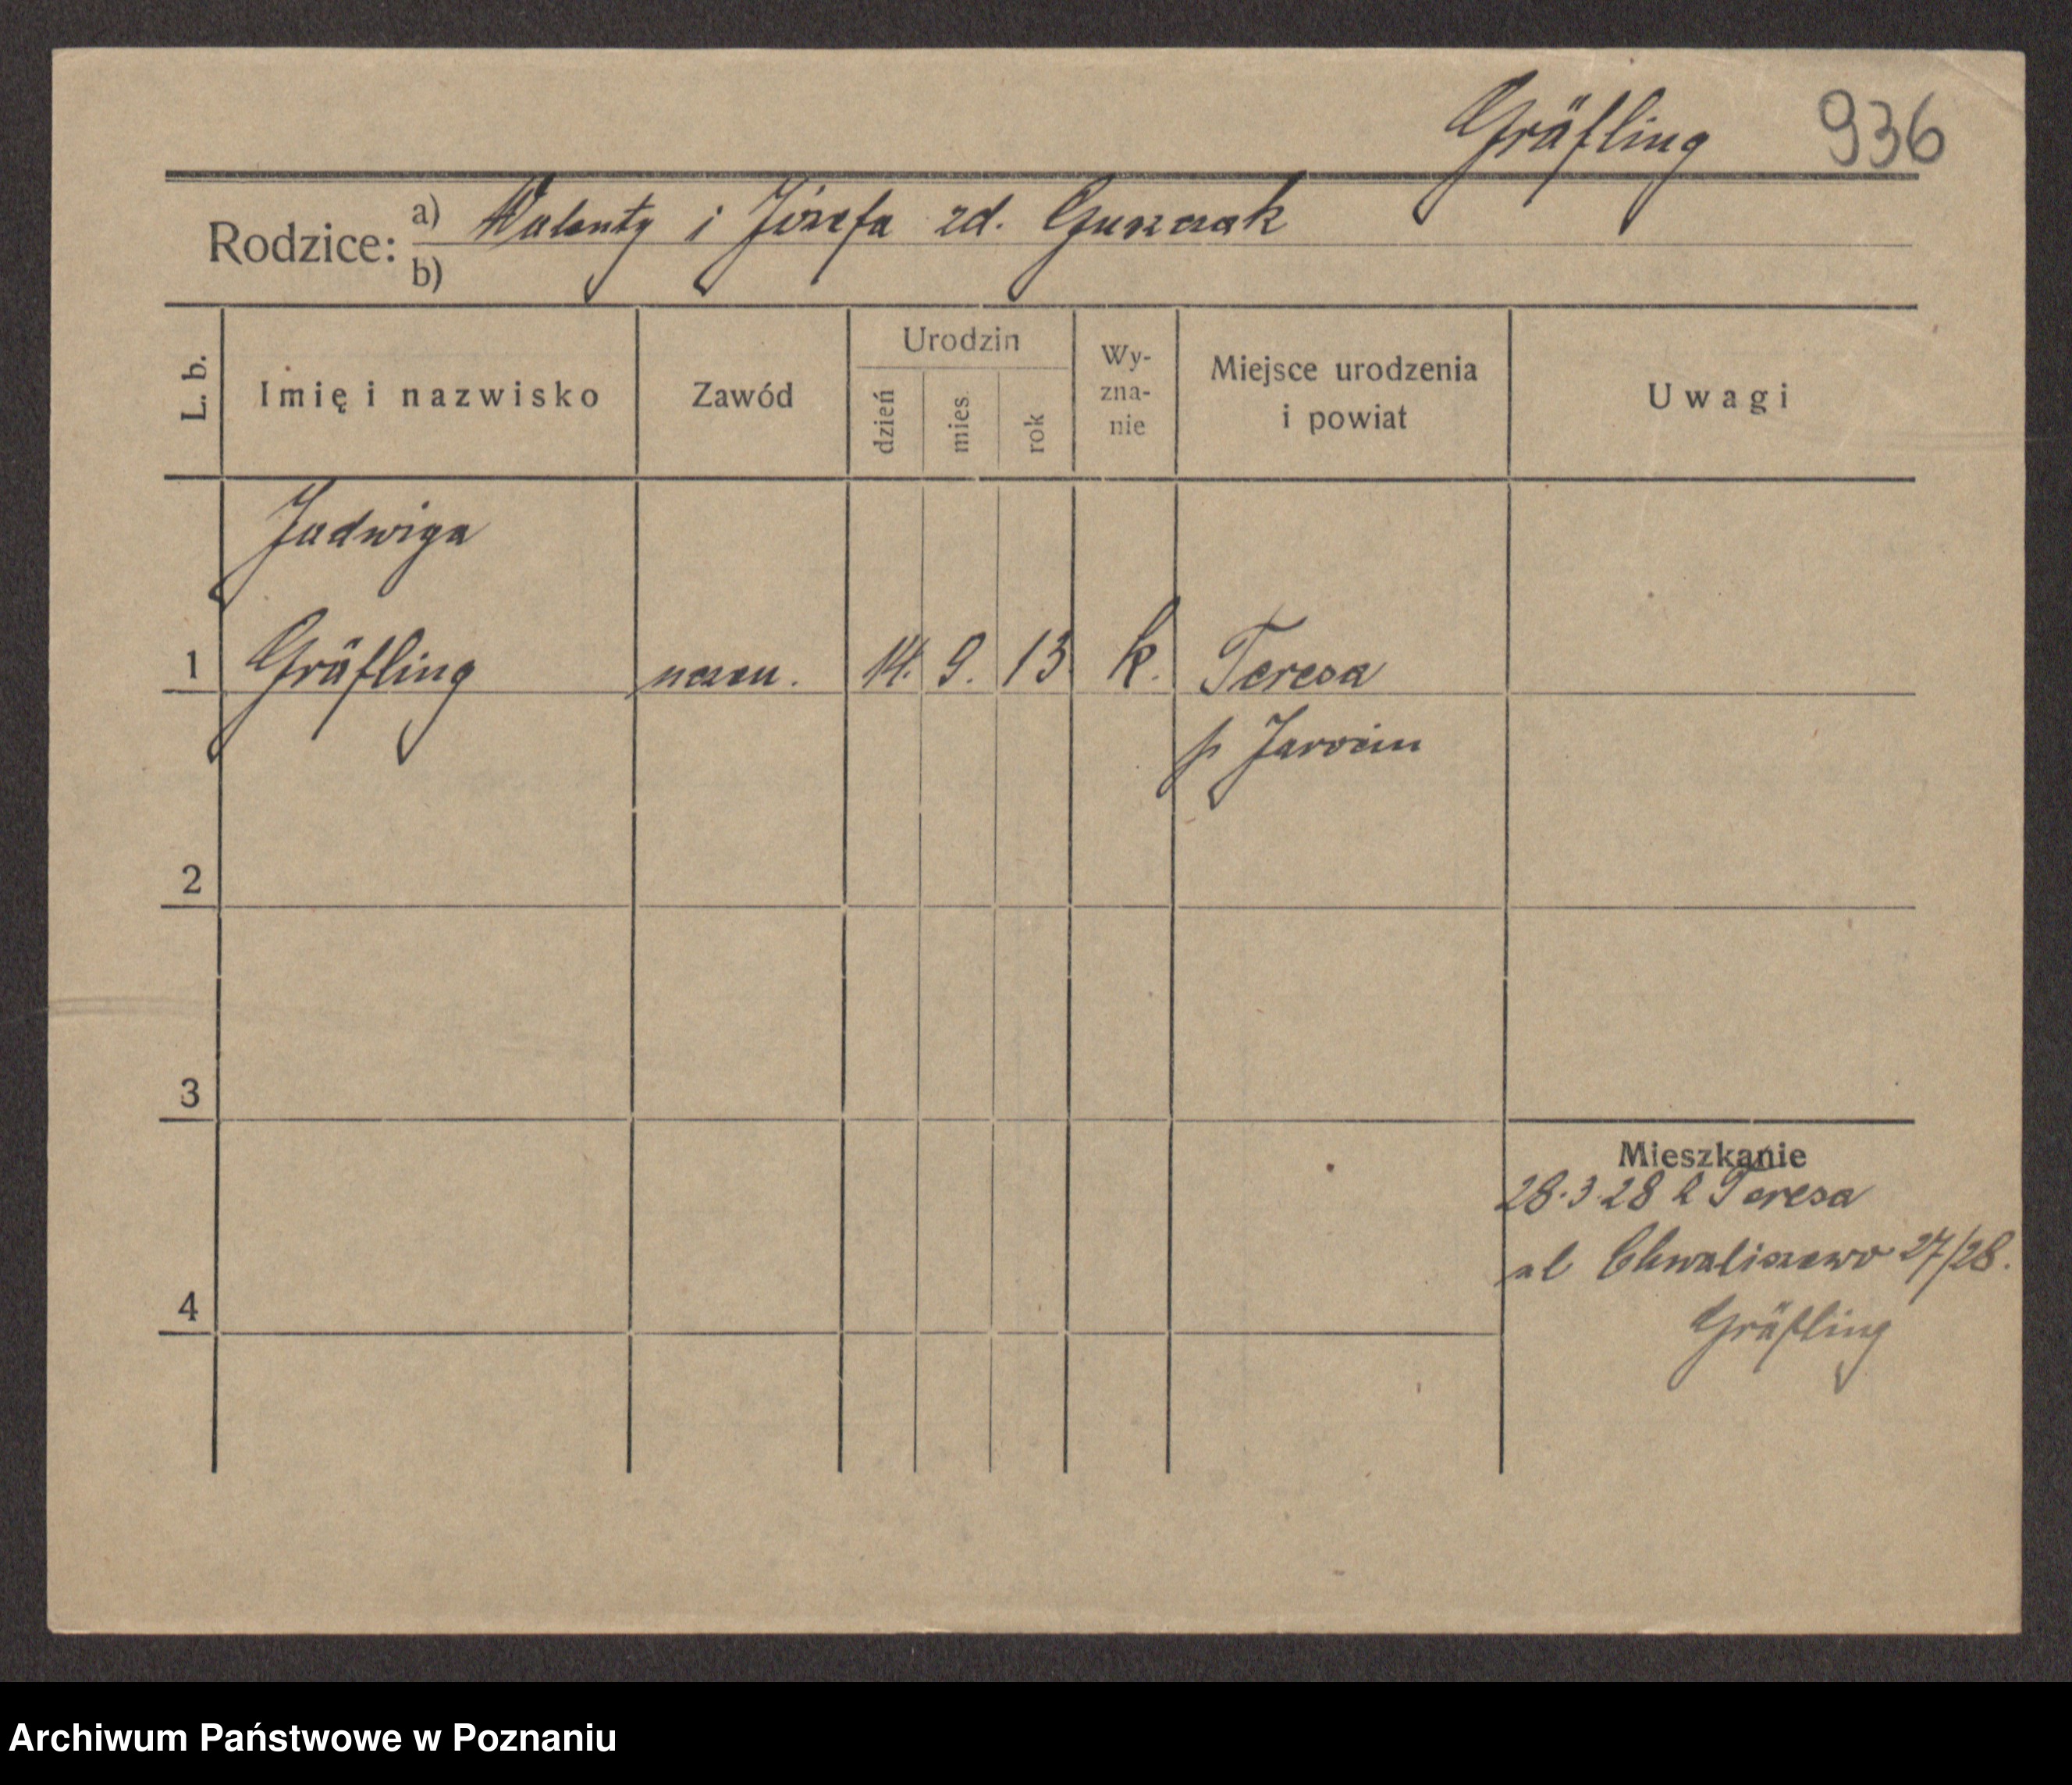 Gräfling 936
Rodzice: a) Walenty i Józefa zd. Guszczak
b)
L. b. Imię i nazwisko Zawód Urodzin dzień mies. rok Wy-zna-nie Miejsce urodzenia i powiat Uwagi
Jadwiga
1 Gräfling uczen. 14. 9. 13. k. Teresa
p Jarocin
2
3
Mieszkanie
28.3.28 z Teresa
ul Chwaliszewo 27/28.
4 Gräfling
Archiwum Państwowe w Poznaniu